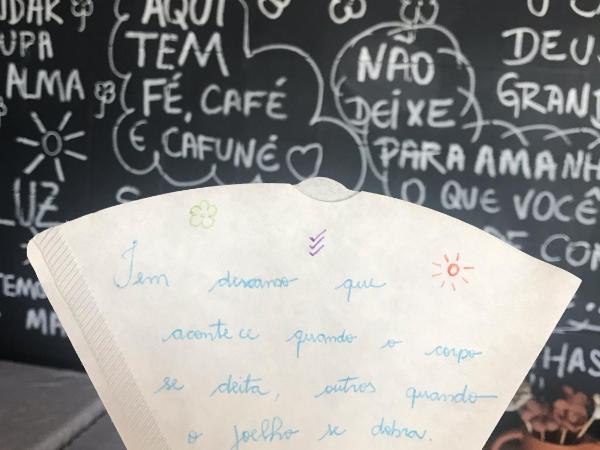 UDAR
UPA
ALMA
LUZ
AQUI
TEM
FÉ, CAFÉ
E CAFUNÉ
NÃO
DEIXE
PARA AMANH
O QUE VOCÊ
DEUS
GRAND
Tem descanso que
acontece quando o corpo
se deita, outros quando
o joelho se dobra.